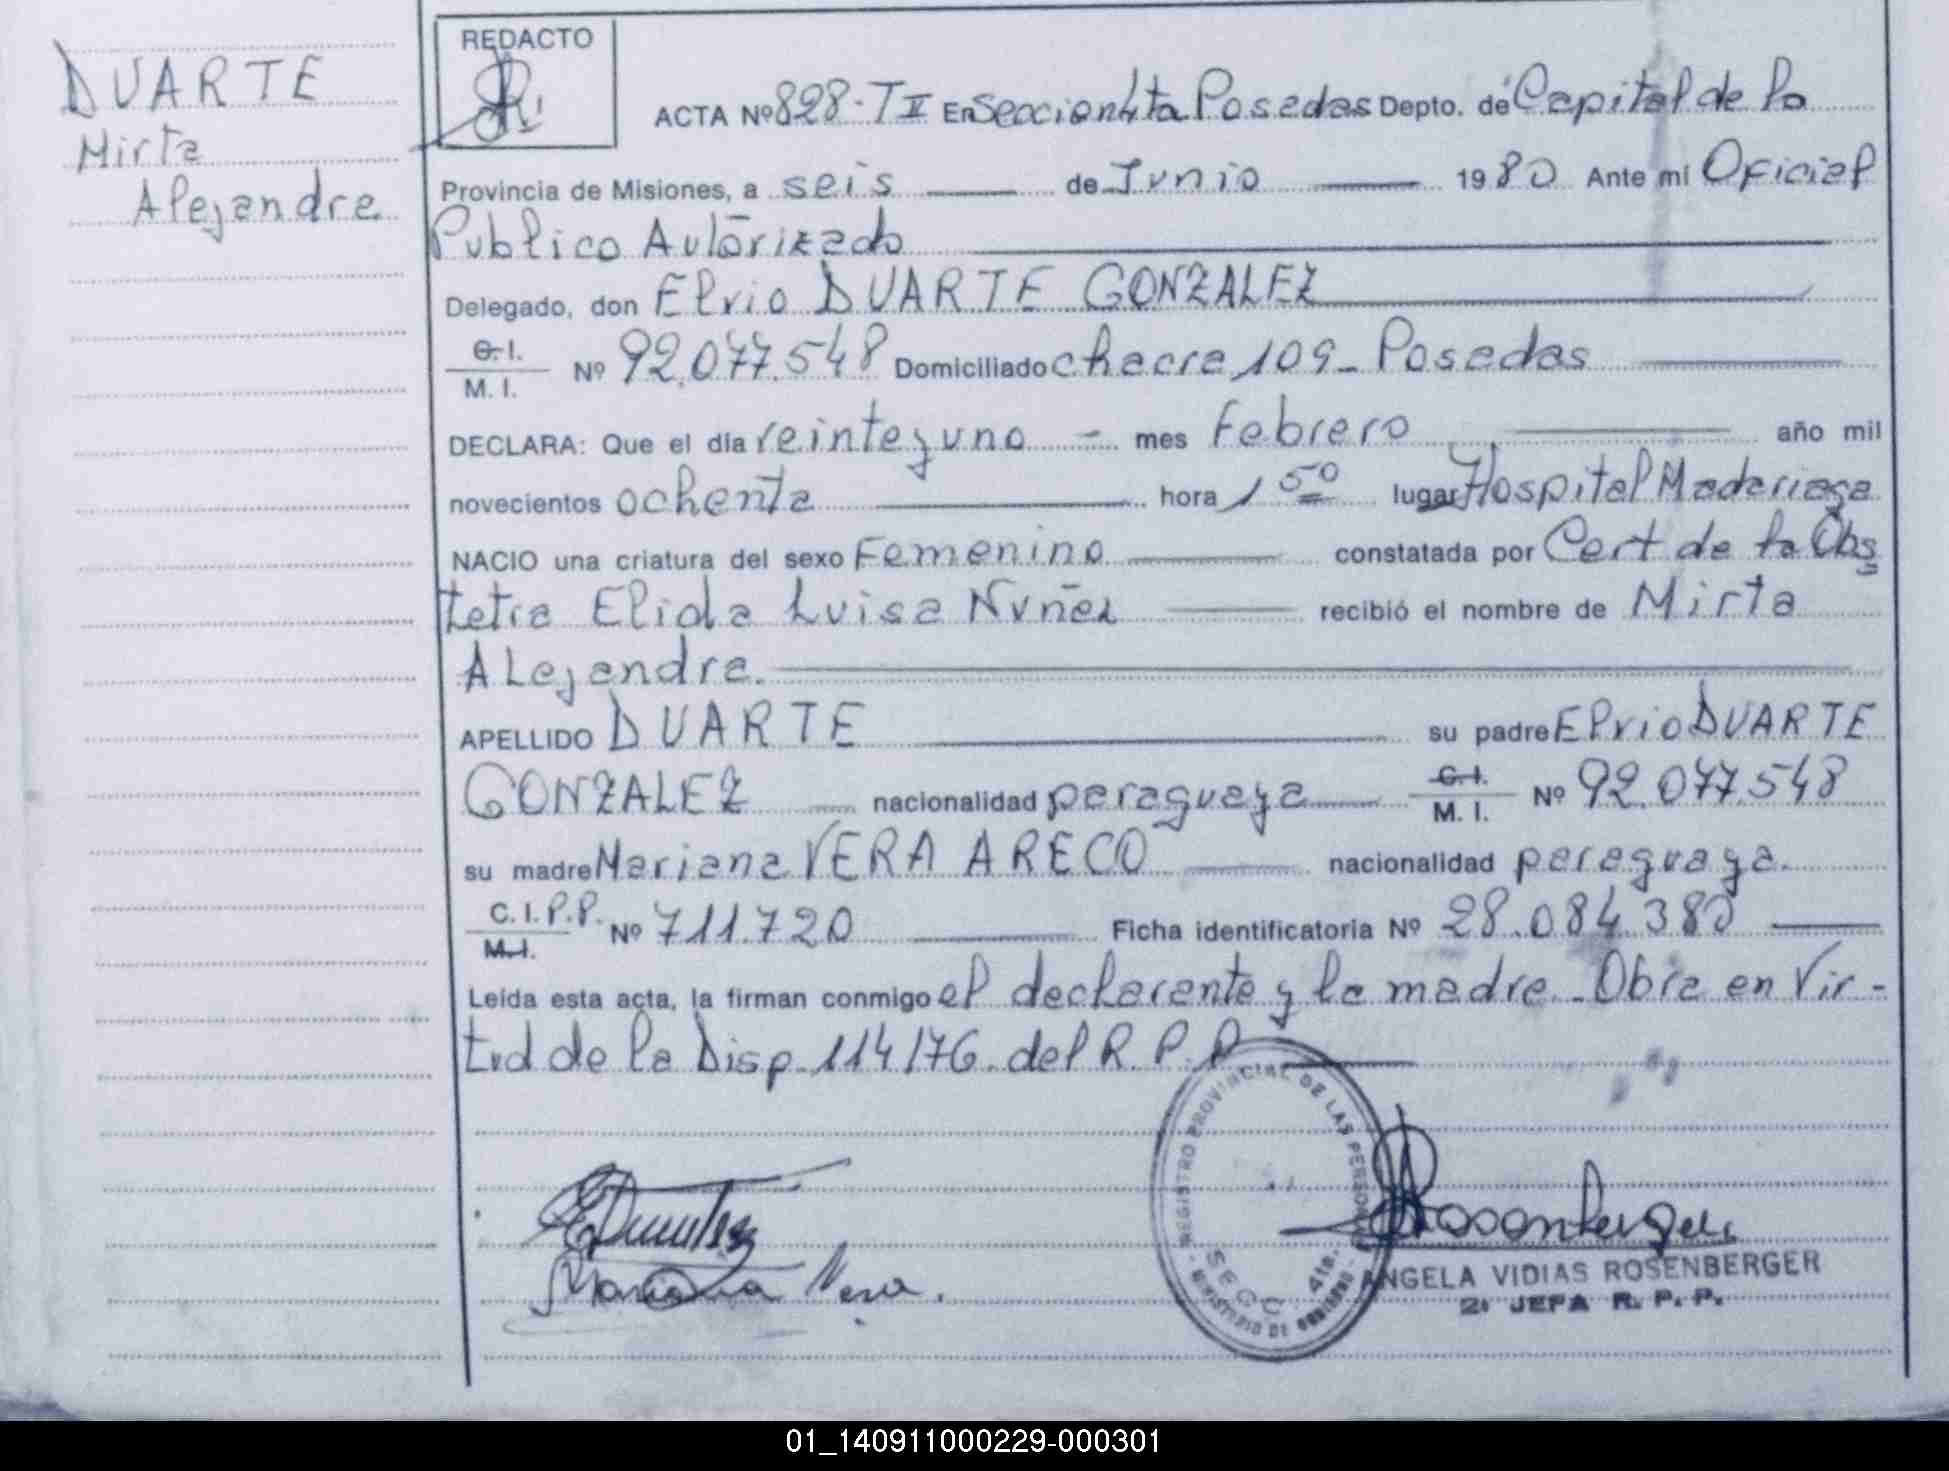 DUARTE
Mirta
Alejandra
REDACTO
ACTA Nº 828-T II En Seccion 4ta Posadas Depto. de Capital de la
Provincia de Misiones, a seis de Junio 1980 Ante mi Oficial
Publico Autorizado
Delegado, don Elvio DUARTE GONZALEZ
C. I.
M. I. Nº 92.077.548 Domiciliado chacra 109- Posadas
DECLARA: Que el día veinteyuno - mes Febrero año mil
novecientos ochenta hora 1 50 lugar Hospital Madariaga
NACIO una criatura del sexo Femenino constatada por Cert de la Obs
tetra Elida Luisa Nuñez recibió el nombre de Mirta
Alejandra.
APELLIDO DUARTE su padre Elvio DUARTE
GONZALEZ nacionalidad paraguaya C. I. M. I. Nº 92.077.548
su madre Mariana VERA ARECO nacionalidad paraguaya.
C. I. P.P. M. I. Nº 711.720 Ficha identificatoria Nº 28.084.380
Leída esta acta, la firman conmigo el declarante y la madre. Obra en Vir-
tud de la Disp. 114/76. del R. P. P.
REGISTRO PROVINCIAL DE LAS PERSONAS
SECC. 4ta.
MINISTERIO DE GOBIERNO
Mariana Vera.
Rosenberger
ANGELA VIDIAS ROSENBERGER
2ª JEFA R. P. P.
01_140911000229-000301